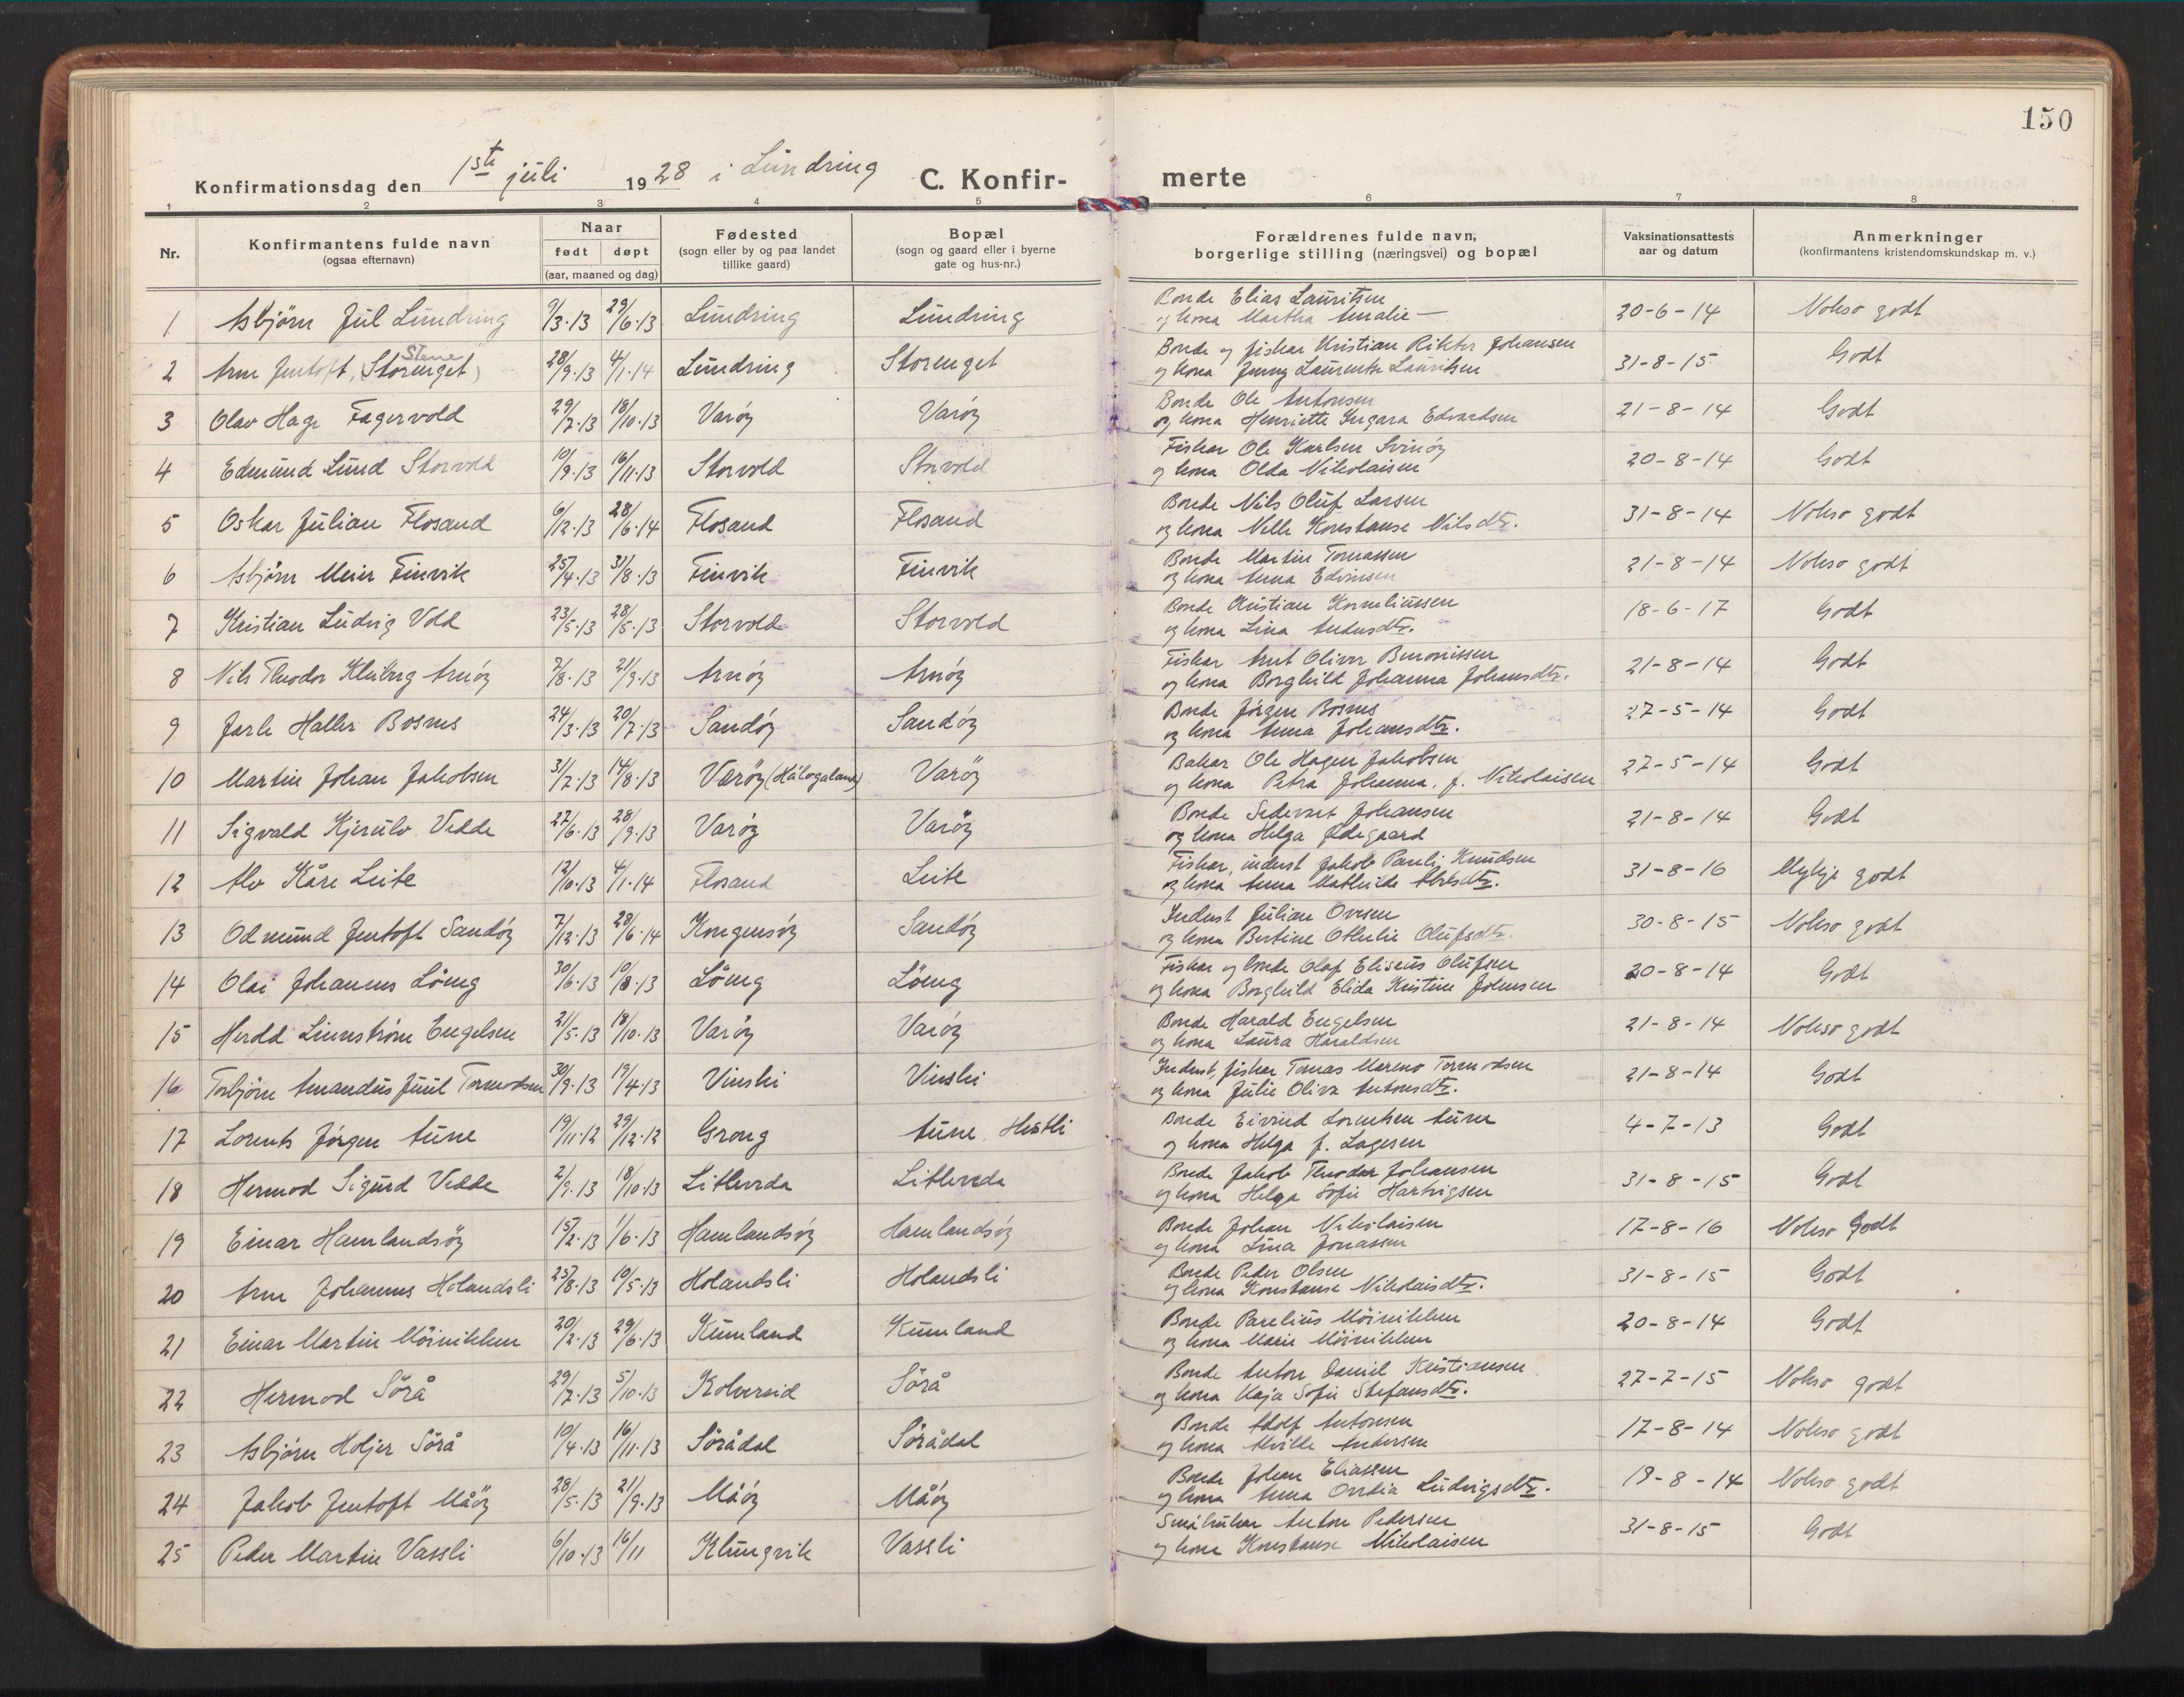 150
Konfirmationsdag den 1ste juli 1928 i Lundring C. Konfir- merte
1 2 3 4 5 6 7 8
Nr. Konfirmantens fulde navn (ogsaa efternavn) Naar født døpt (aar, maaned og dag) Fødested (sogn eller by og paa landet tillike gaard) Bopæl (sogn og gaard eller i byerne gate og hus-nr.) Forældrenes fulde navn, borgerlige stilling (næringsvei) og bopæl Vaksinationsattests aar og datum Anmerkninger (konfirmantens kristendomskundskap m. v.)
1 Asbjörn Jul Lundring 9/3.13 29/6.13 Lundring Lundring Bonde Elias Lauritsen
og kona Martha Amalie — 20-6-14 Nokso godt
2 Arne Jentoft, (Storenget) Stene 28/9.13 4/1.14 Lundring Storenget Bonde og fiskar Kristian Rikter Johansen
og kona Jenny Laurentse Lauritsen 31-8-15 Godt
3 Olav Hage Fagervold 29/7.13 18/10.13 Varöy Varöy Bonde Ole Antonsen
og kona Henriette Ingara Edvardsen 21-8-14 Godt
4 Edmund Lund Storvold 10/9.13 16/11.13 Storvold Storvold Fiskar Ole Karlsen Svinöy
og kona Olda Nikolaisen 20-8-14 Godt
5 Oskar Julian Flosand 6/12.13 28/6.14 Flosand Flosand Bonde Nils Oluf Larsen
og kona Nelle Konstanse Nilsdtr. 31-8-14 Nokso godt
6 Asbjörn Meier Finvik 25/4.13 31/8.13 Finvik Finvik Bonde Martin Tomassen
og kona Anna Edvinsen 21-8-14 Nokso godt
7 Kristian Ludvig Vold 23/5.13 28/5.13 Storvold Storvold Bonde Kristian Korneliussen
og kona Lina Andersdtr. 18-6-17 Godt
8 Nils Theodor Kleiberg Arnöy 7/8.13 21/9.13 Arnöy Arnöy Fiskar Arnt Oliver Benonissen
og kona Borghild Johanna Johansdtr. 21-8-14 Godt
9 Jarle Haller Bosnes 24/3.13 20/7.13 Sandöy Sandöy Bonde Jörgen Bosnes
og kona Anna Johansdtr. 27-5-14 Godt
10 Martin Johan Jakobsen 31/7.13 14/8.13 Væröy (Hålogaland) Varöy Bakar Ole Hagen Jakobsen
og kona Petra Johanna, f. Nikolaisen 27-5-14 Godt
11 Sigvald Kjerulv Vedde 27/6.13 28/9.13 Varöy Varöy Bonde Sedevart Johansen
og kona Helga Ødegaard 21-8-14 Godt
12 Alv Kåre Leite 12/10.13 4/1.14 Flosand Leite Fiskar, inderst Jakob Pareli Knudsen
og kona Anna Mathilde Albtsdtr. 31-8-16 Mykje godt
13 Odmund Jentoft Sandöy 7/12.13 28/6.14 Kongensöy Sandöy Inderst Julian Ovesen
og kona Bertine Othelie Olufsdtr. 30-8-15 Nokso godt
14 Olai Johannes Löeng 30/6.13 10/8.13 Löeng Löeng Fiskar og bonde Olaf Eliseus Olufsen
og kona Borghild Elida Kristine Johnsen 20-8-14 Godt
15 Herold Linnström Engelsen 21/5.13 18/10.13 Varöy Varöy Bonde Harald Engelsen
og kona Laura Haraldsen 21-8-14 Nokso godt
16 Torbjörn Amandus Juul Tormodsen 30/9.13 19/4.13 Vinsli Vinsli Inderst, fiskar Tomas Mareno Tormodsen
og kona Julie Oliva Antonsdtr. 21-8-14 Godt
17 Lorents Jörgen Aune 19/11.12 29/12.12 Grong Aune, Hestli Bonde Eivind Lorentsen Aune
og kona Helga f. Lagesen 4-7-13 Godt
18 Hermod Sigurd Vedde 2/9.13 18/10.13 Litlereda Litlereda Bonde Jakob Theodor Johansen
og kona Helga Sofie Hartvigsen 31-8-15 Godt
19 Einar Hamlandsöy 15/2.13 1/6.13 Hamlandsöy Hamlandsöy Bonde Johan Nikolaisen
og kona Lina Jonassen 17-8-16 Nokso Godt
20 Arne Johannes Holandsli 25/8.13 10/5.13 Holandsli Holandsli Bonde Peder Olsen
og kona Konstanse Nikolaisdtr. 31-8-15 Godt
21 Einar Martin Möinikken 20/2.13 29/6.13 Kumland Kumland Bonde Parelius Möinikken
og kona Marie Möinikken 20-8-14 Godt
22 Hermod Sörå 29/7.13 5/10.13 Kolvereid Sörå Bonde Anton Daniel Kristiansen
og kona Kaja Sofie Stefansdtr. 27-7-15 Nokso godt
23 Asbjörn Holjer Sörå 10/4.13 16/11.13 Sörådal Sörådal Bonde Adolf Antonsen
og kona Alvilde Andersen 17-8-14 Nokso godt
24 Jakob Jentoft Måöy 28/5.13 21/9.13 Måöy Måöy Bonde Johan Eliassen
og kona Anna Ovedia Ludvigsdtr. 19-8-14 Nokso godt
25 Peder Martin Vassli 6/10.13 16/11 Klungvik Vassli Småbrukar Anton Pedersen
og kona Konstanse Nikolaisen 31-8-15 Godt